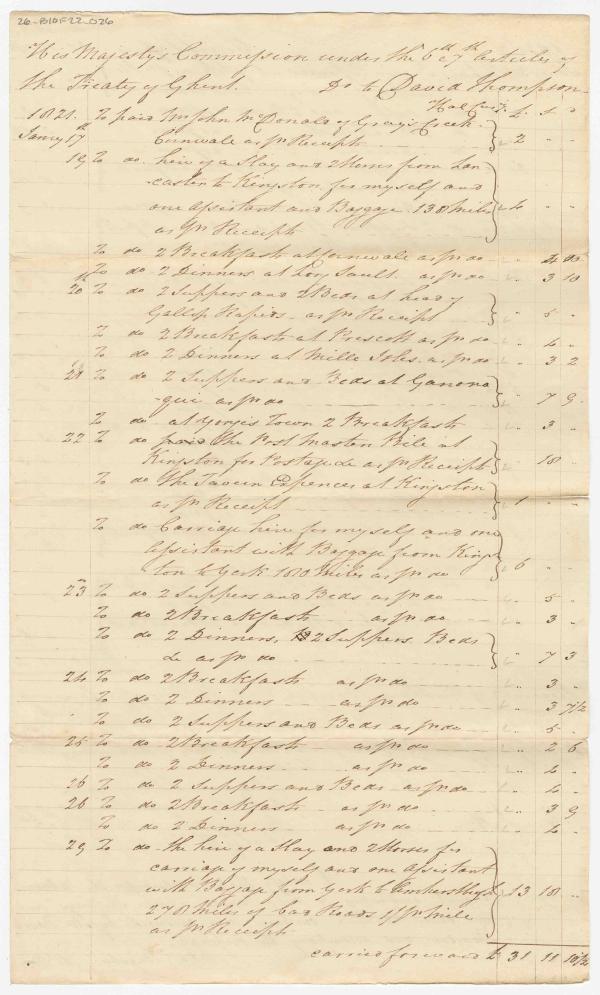 26-B10F22-026
His Majesty's Commission under the 6th & 7th articles of
the Treaty of Ghent. Dr to David Thompson
Hal Cury. £ s d
1821. To paid Mr John McDonald of Grays Creek
Jany 17th Cornwale as pr Receipt 2 " "
19 To do. hire of a Slay and 2 Horses from Lan-
-caster to Kingston, for myself and
one assistant and Baggage. 130 Miles 4 " "
as pr Receipt
To do 2 Breakfasts at Cornwale as pr do " 4
To do 2 Dinners at Long Sault. as pr do " 3 10
20 To do 2 Suppers and 2 Beds at head of
Gallop Rapids - as pr Receipt " 5 "
To do 2 Breakfasts at Prescott as pr do " 4 "
To do 2 Dinners at Mille Isles. as pr do " 3 2
21 To do 2 Suppers and Beds at Ganona
-qui as pr do " 7 9
To do at Yorges Town 2 Breakfasts " 3 "
22 To do paid the Post Master Bile at
Kingston for Postage &c as pr Receipt " 18 "
To do The Tavern Expences at Kingston
as pr Receipt 1 " "
To do Carriage hire for myself and one
assistant with Baggage from Kings
ton to York 180 Miles as pr do 6 " "
23 To do 2 Suppers and Beds as pr do " 5 "
To do 2 Breakfasts as pr do " 3 "
To do 2 Dinners, 2 Suppers, Beds
&c as pr do " 7 3
24 To do 2 Breakfasts as pr do " 3 "
To do 2 Dinners as pr do " 3 7 1/2
To do 2 Suppers and Beds as pr do " 5 "
25 To do 2 Breakfasts as pr do " 2 6
To do 2 Dinners as pr do " 4 "
26 To do 2 Suppers and Beds as pr do " 4 "
26 To do 2 Breakfasts as pr do " 3 9
To do 2 Dinners as pr do " 4 "
29 To do the hire of a Slay and 2 Horses for
carriage of myself and one assistant
with Baggage from York to Amherstburgh 13 18 "
278 Miles of bad Roads 1/ pr mile
as pr Receipt
carried forward £ 31 11 10 1/2